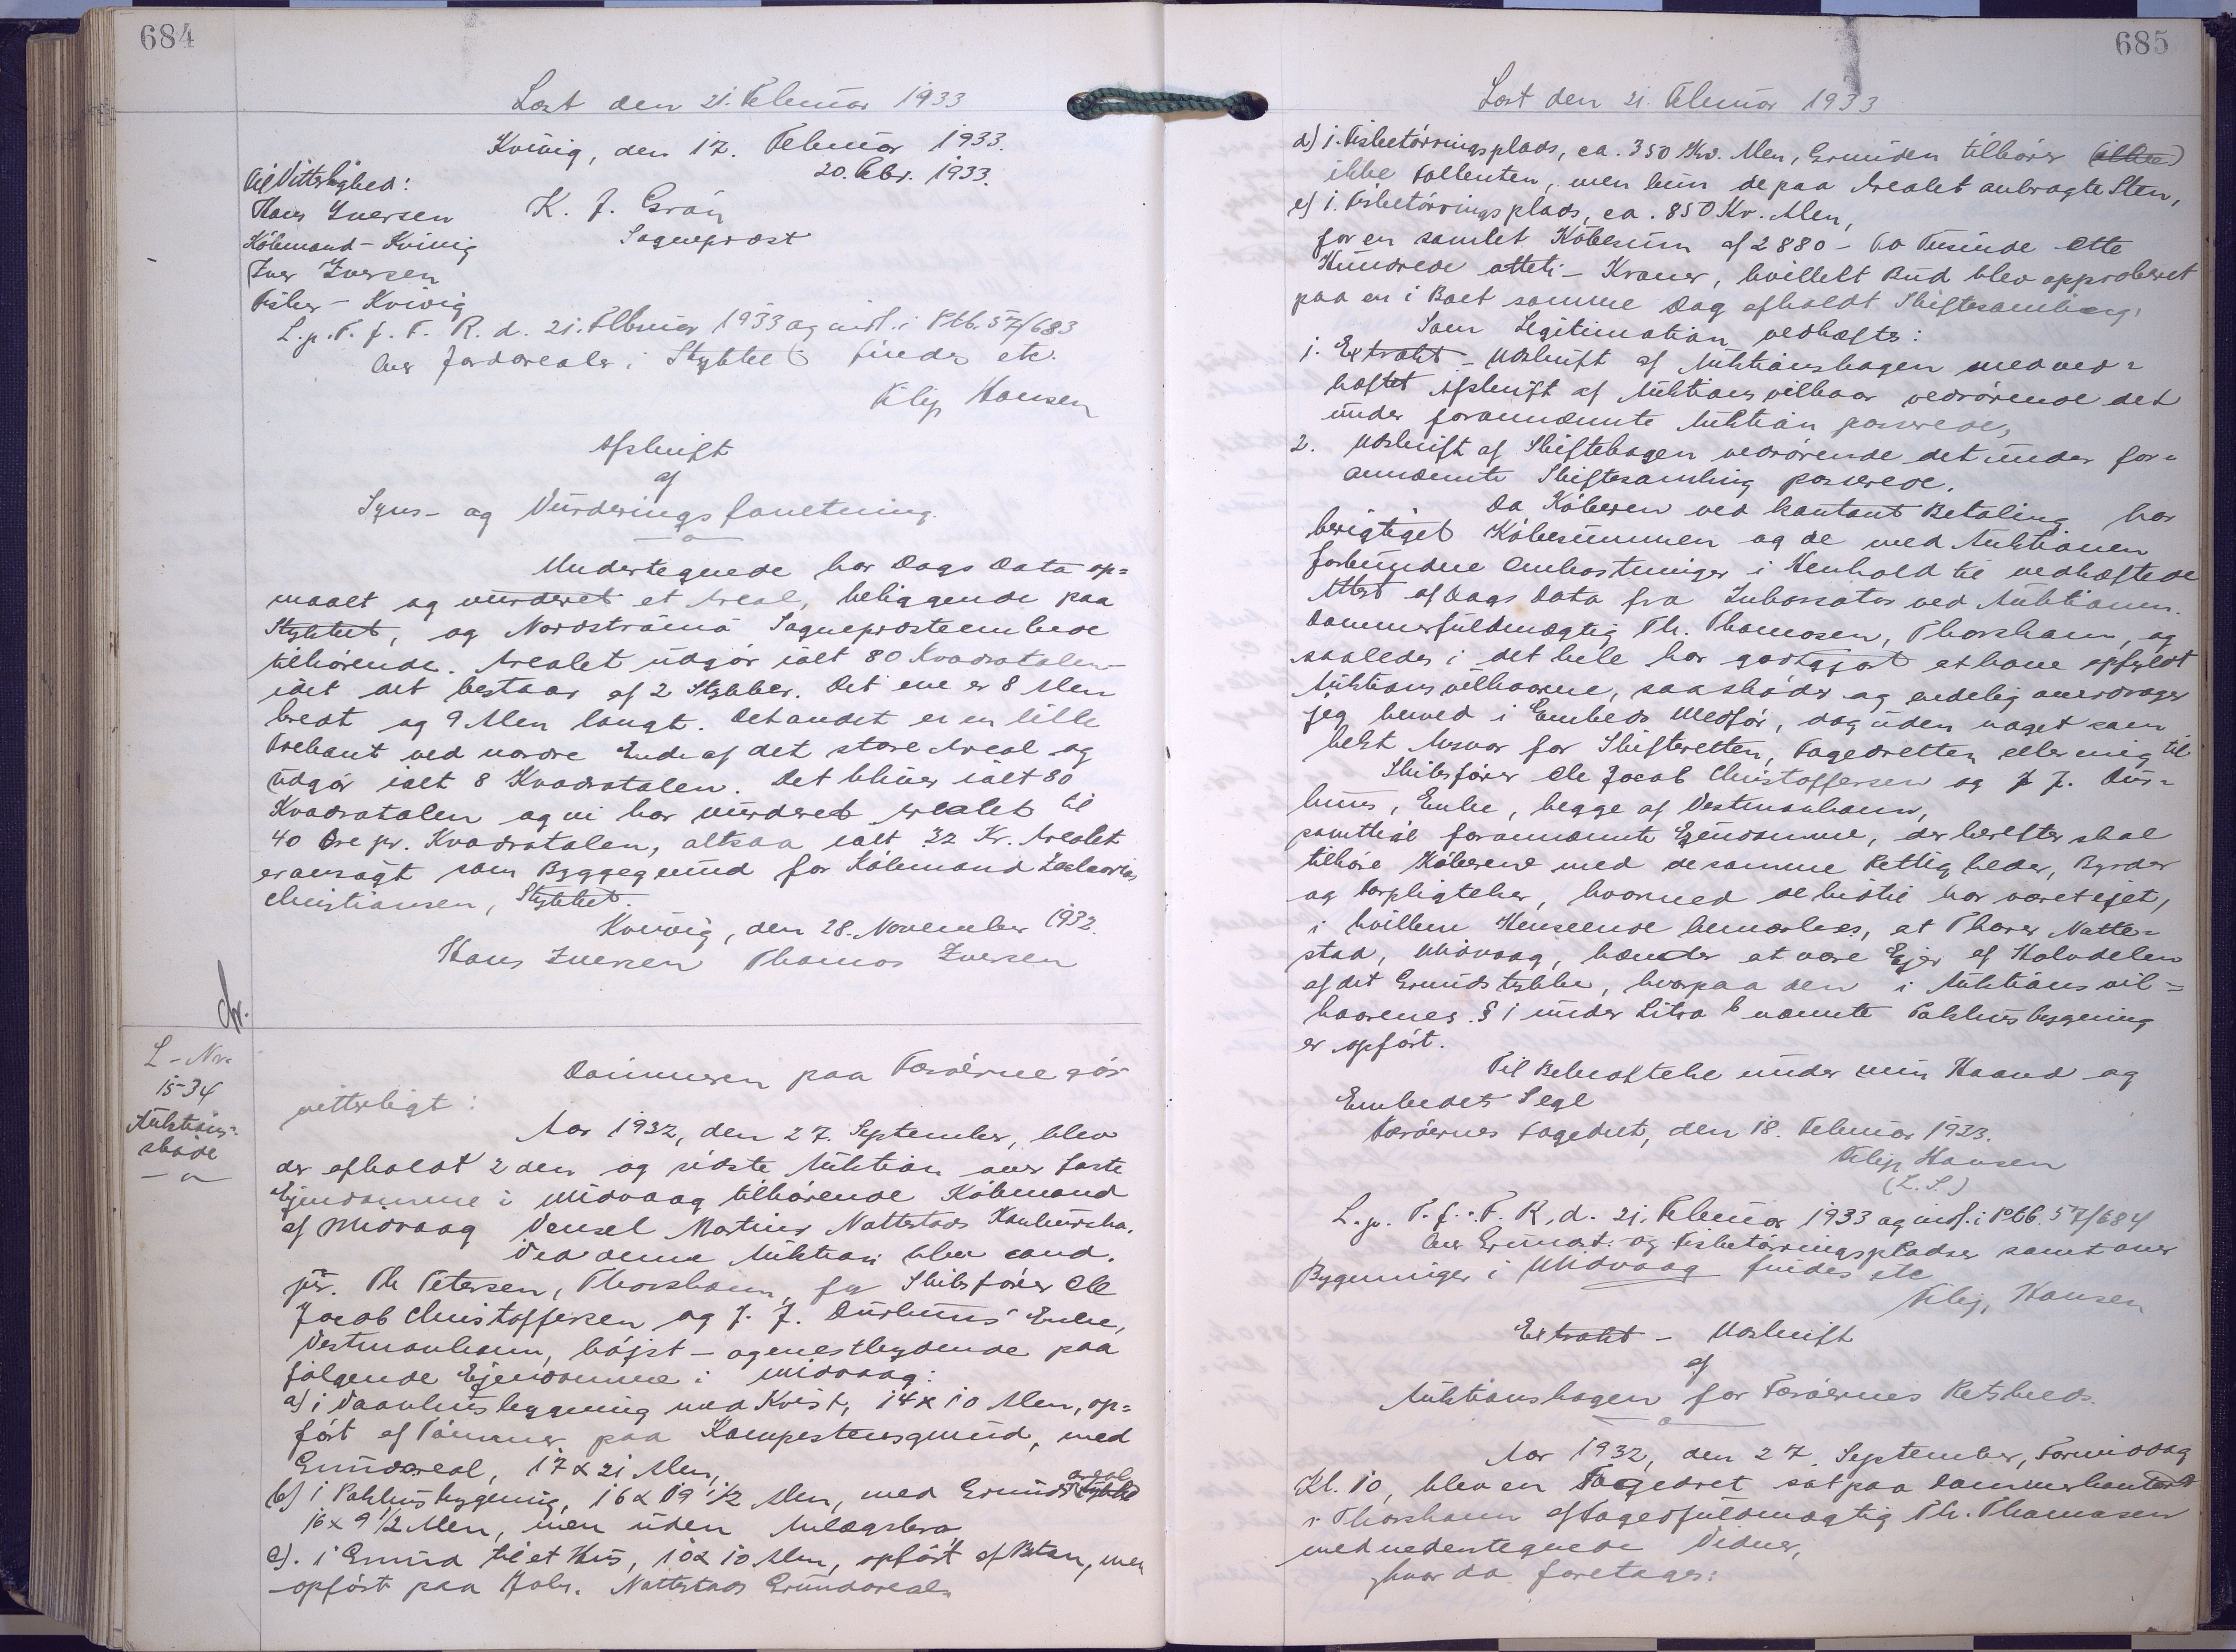 684
Læst den 21. Februar 1933
Kvivig, den 17. Februar 1933.
20. Febr. 1933.
Til Vitterlighed:
Hans Iversen
K. J. Grån
Købmand - Kvivig
Sognepræst
Iver Iversen
Fisker - Kvivig
L. p. T. f. F. R. d. 21. Februar 1933 og indf. i Ptb. 57/683
Over Jordarealer i Stykket findes etc.
Filip Hansen
Afskrift
af
Syns- og Vurderingsforretning.
Undertegnede har Dags Dato op=
maalt og vurderet et Areal, beliggende paa
Stykket, og Nordstrømø Sognepræsteembede
tilhørende. Arealet udgør ialt 80 Kvadratalen -
idet det bestaar af 2 Stykker. Det ene er 8 Alen
bredt og 9 Alen langt. Det andet er en lille
Trekant ved nordre Ende af det store Areal og
udgør ialt 8 Kvadratalen. Det bliver ialt 80
Kvadratalen og vi har vurderet Arealet til
40 Øre pr. Kvadratalen, altsaa ialt 32 Kr. Arealet
er ansøgt som Byggegrund for Købmand Zacharias
Christiansen, Stykket.
Kvivig, den 28. November 1932.
Hans Iversen Thomas Iversen
L - Nr.
15-34
Auktions=
skøde
Dommeren paa Færøerne gør
vitterligt:
Aar 1932, den 27. September, blev
der afholdt 2den og sidste Auktion over faste
Ejendomme i Midvaag tilhørende Købmand
af Midvaag Vensel Martins Nattestads Konkursbo.
Ved denne Auktion blev cand.
jur. Th Petersen, Thorshavn, for Skibsfører Ole
Jacob Christoffersen og J. J. Durhuus' Enke,
Vestmanhavn, højst- og næstbydende paa
følgende Ejendomme i Midvaag:
a) 1 Vaanhusbygning med Kvist, 14 x 10 Alen, op=
ført af Tømmer paa Kampestensgrund, med
Grundareal, 17 x 21 Alen,
b) 1 Pakhusbygning, 16 x 19 1/2 Alen, med Grundareal
16 x 9 1/2 Alen, men uden Anlægsbro
c). 1 Grund til et Hus, 10 x 10 Alen, opført af Beton, men
opført paa Johs. Nattestads Grundareal,
685
Læst den 21. Februar 1933
d) 1. Fisketørringsplads, ca. 350 Kv. Alen, Grunden tilhører
ikke Fallenten, men kun de paa Arealet anbragte Sten,
e) 1. Fisketørringsplads, ca. 850 Kv. Alen,
for en samlet Købesum af 2880 - To Tusinde Otte
Hundrede otteti - Kroner, hvilket Bud blev approberet
paa en i Boet samme Dag afholdt Skiftesamling.
Som Legitimation vedhæftes:
1. Extrakt - Udskrift af Auktionsbogen med ved=
hæftet Afskrift af Auktionsvilkaar vedrørende det
under forannævnte Auktion passerede,
2. Udskrift af Skiftebogen vedrørende det under for=
annævnte Skiftesamling passerede.
Da Køberen ved kontant Betaling har
berigtiget Købesummen og de med Auktionen
forbundne Omkostninger i Henhold til vedhæftede
Attest af Dags Dato fra Inkassator ved Auktionen.
Dommerfuldmægtig Th. Thomasen, Thorshavn, og
saaledes i det hele har godtgjort at have opfyldt
Auktionsvilkaarene, saa skøder og endelig overdrager
jeg herved i Embeds Medfør, dog uden noget som
helst Ansvar for Skifteretten, Fogedretten eller mig til
Skibsfører Ole Jacob Christoffersen og J. J. Dur=
huus, Enke, begge af Vestmanhavn,
samtlige forannævnte Ejendomme, der herefter skal
tilhøre Køberne med de samme Rettigheder, Byrder
og Forpligtelser, hvormed de hidtil har været ejet,
i hvilken Henseende bemærkes, at Thorer Natte=
stad, Midvaag, hævder at være Ejer af Halvdelen
af det Grundstykke, hvorpaa den i Auktionsvil=
kaarenes § 1 under Litra b nævnte Pakhusbygning
er opført.
Til Bekræftelse under min Haand og
Embedets Segl
Færøernes Fogedret, den 18. Februar 1933.
Filip Hansen
(L. S.)
L. p. T. f. F. R. d. 21. Februar 1933 og indf. i Ptb. 57/684
Over Grunde og Fisketørringspladser samt over
Bygninger i Midvaag findes etc
Filip Hansen
Extrakt - Udskrift
af
Auktionsbogen for Færøernes Retskreds.
Aar 1932, den 27. September, Formiddag
Kl. 10, blev en Fogedret sat paa Dommerkontoret
i Thorshavn af Fogedfuldmægtig Th. Thomasen
med nedentegnede Vidner,
hvor da foretages: